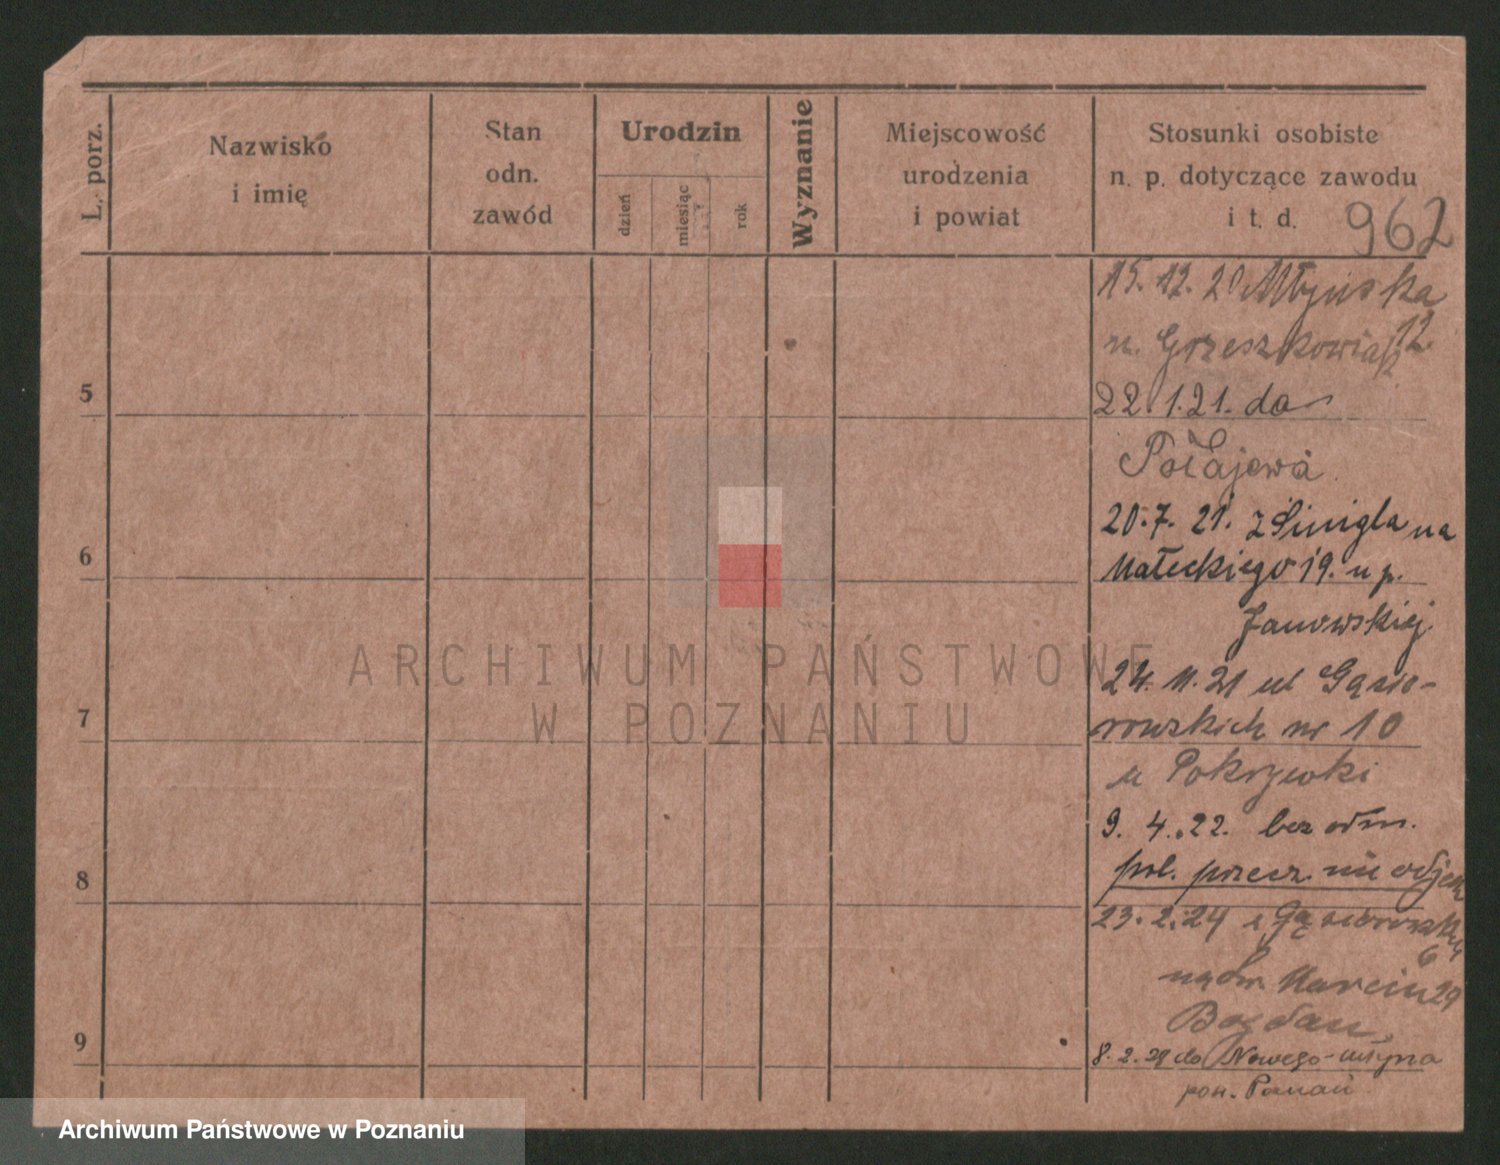 L. porz.
Nazwisko
i imię
Stan
odn.
zawód
Urodzin
dzień
miesiąc
rok
Wyznanie
Miejscowość
urodzenia
i powiat
Stosunki osobiste
n. p. dotyczące zawodu
i t. d.
962
15. 12. 20 Młyńska
12.
u. Grzeszkowiak
5
22. 1. 21. do
Połajewa
20. 7. 21. z Śmigla na
6
Małeckiego 19. u p.
Janowskiej
24. 11. 21 ul Gąsio-
7
rowskich nr 10
u Pokrzywki
9. 4. 22. bez odm.
8
pol. przecz. nie odjech
23. 2. 24 z Gąsiorowskich
6
na św. Marcin 29
Bogdan
9
8. 2. 29 do Nowego-młyna
pow. Poznań
ARCHIWUM PAŃSTWOWE
W POZNANIU
Archiwum Państwowe w Poznaniu